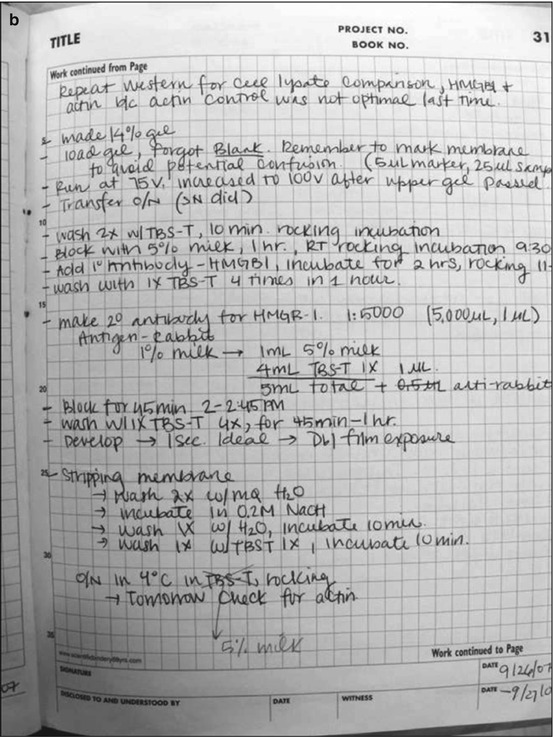 b
TITLE
PROJECT NO.
BOOK NO.
31
Work continued from Page
Repeat Western for cell lysate comparison, HMGB1 +
actin b/c actin control was not optimal last time.
5 - made 14% gel
- load gel, Forgot Blank. Remember to mark membrane
to avoid potential confusion. (5uL marker, 25uL samp
- Run at 75V, increased to 100V after upper gel passed
- Transfer O/N (SN did)
10
- wash 2x w/TBS-T, 10 min. rocking incubation
- Block with 5% milk, 1 hr., RT rocking incubation 9:30
- Add 1° Antibody - HMGB1, incubate for 2 hrs, rocking 11-
- wash with 1X TBS-T 4 times in 1 hour.
15
- make 2° antibody for HMGB-1. 1:5000 (5,000uL, 1uL)
Antigen - Rabbit
1% milk → 1mL 5% milk
4mL TBS-T 1X 1uL
20 5mL total + 0.5uL anti-rabbit
- Block for 45min 2-2:45PM
- wash w/1X TBS-T 4x, for 45min-1hr.
- Develop → 1 Sec. Ideal → film exposure
25 - Stripping membrane
→ wash 2x w/mq H2O
→ incubate in 0.2M NaOH
→ wash 1X w/H2O, incubate 10min.
→ wash 1x w/TBST 1X, incubate 10min.
30
O/N in 4°C in TBS-T, rocking
→ Tomorrow check for actin
35
5% milk
Work continued to Page
SIGNATURE
DATE 9/26/07
DISCLOSED TO AND UNDERSTOOD BY
DATE
WITNESS
DATE -9/27/0
07